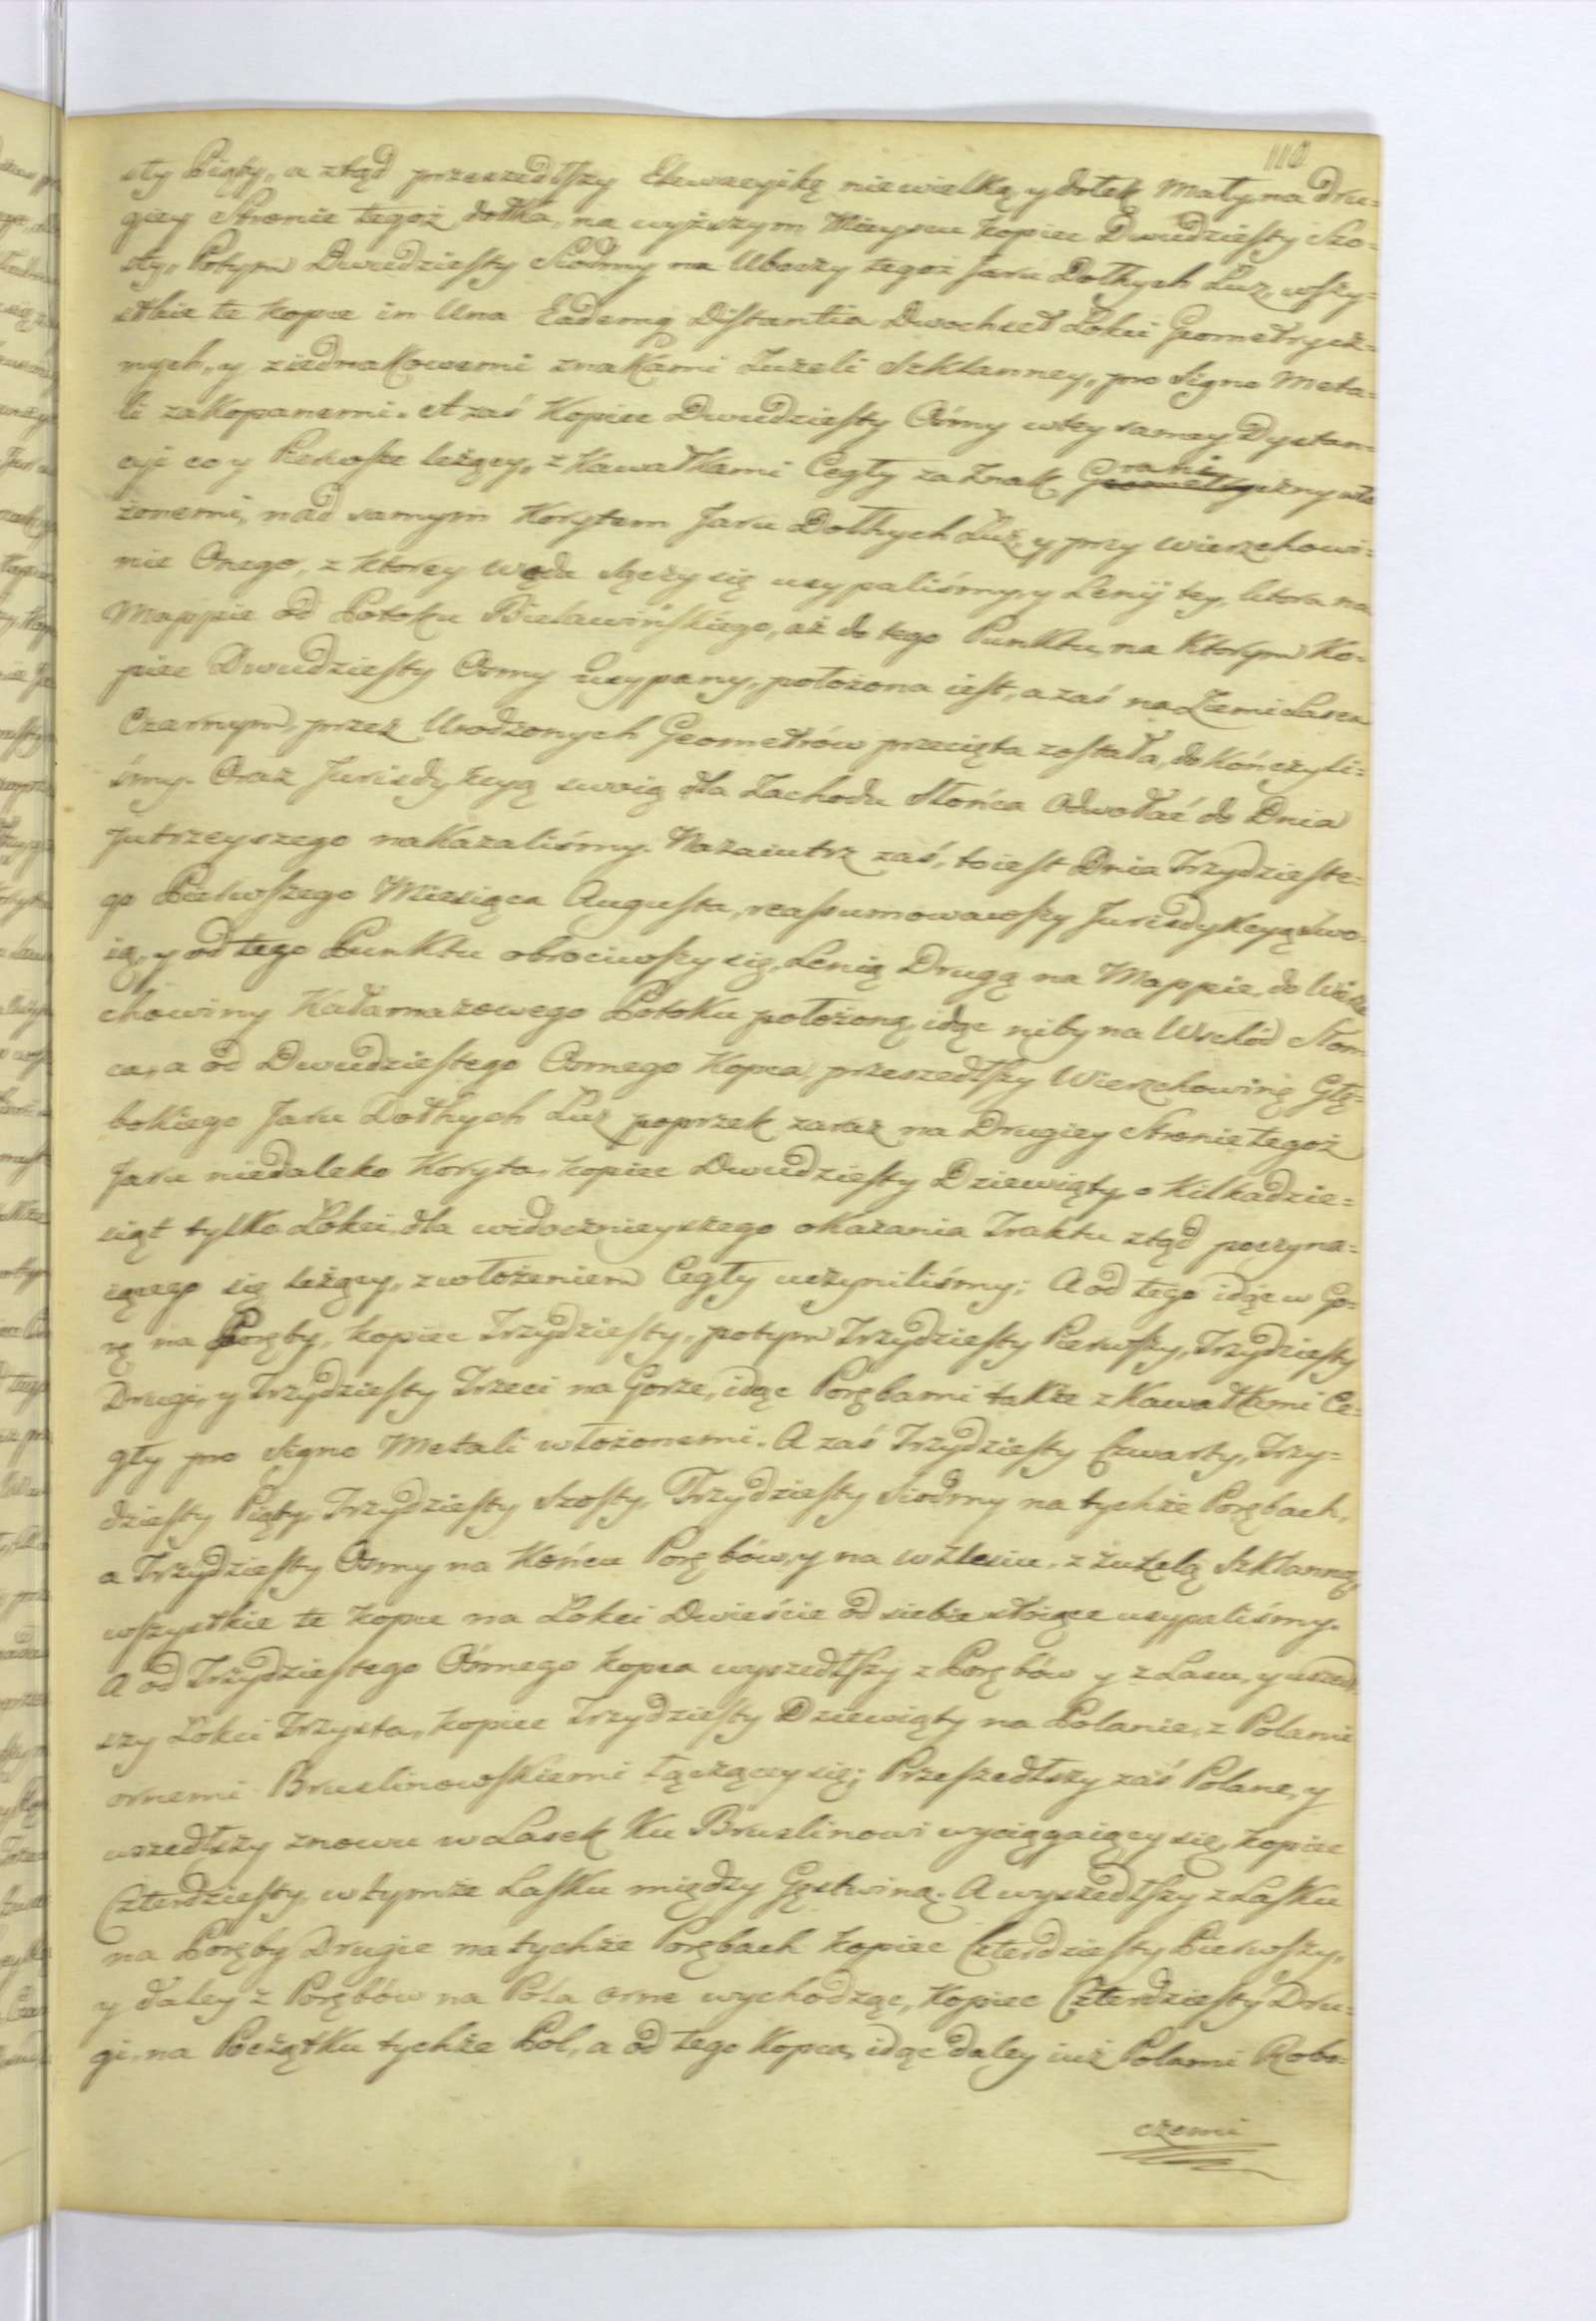 110
sty Piąty, a ztąd przeszedłszy Elewacyikę niewielką, y dołek mały, na Dru=
giey Stronie tegoż dołka, na wyższym Mieyscu kopiec Dwudziesty Szo=
sty, Potym Dwudziesty Siodmy na Uboczy tegoż Jaru Dołhych Łuz, wszy=
stkie te kopce in Una Eademq Distantia Dwochset Łokci Geometrycz=
nych, y ziednakowemi znakami Zużeli Szklanney, pro Signo Meta=
li zakopanemi. A zaś Kopiec Dwudziesty Osmy wtey samey Dystan=
cyi co y Pierwsze leżący, z Kawałkami Cegły za Znak Graniczny wło
żonemi, nad samym Korytem Jaru Dołhych Łuz, y przy wierzchowi=
nie Onego, z ktorey woda sączy się usypaliśmy, y Lenij tey, ktora na
Mappie od Potoku Bielawińskiego, aż do tego Punktu, na Ktorym Ko=
piec Dwudziesty Osmy usypany, położona iest, a zaś na Ziemi Lasem
Czarnym, przez Urodzonych Geometrów przecięta została, dokończyli=
śmy. Oraz Jurisdykcyą swoią dla Zachodu Słońca Odwołać do Dnia
Jutrzeyszego nakazaliśmy. Nazaiutrz zaś, to iest Dnia Trzydzieste=
go Pierwszego Miesiąca Augusta, reassumowawszy Jurisdykcyą swo=
ią, y od tego Punktu obrociwszy się, Lenią Drugą na Mappie, do Wierz
chowiny Kałamazowego Potoku położoną, idąc niby na Wschód Słoń
ca, a od Dwudziestego Osmego Kopca, przeszedłszy Wierzchowinę Głę=
bokiego Jaru Dołhych Łuz poprzek zaraz na Drugiey Stronie tegoż
Jaru niedaleko Koryta, kopiec Dwudziesty Dziewiąty, o Kilkadzie=
siąt tylko Łokci, dla widocznieyszego okazania Traktu ztąd poczyna=
iącego się leżący, zwłożeniem Cegły uczyniliśmy; A od tego idąc w Go=
rę na Poręby, kopiec Trzydziesty, potym Trzydziesty Pierwszy, Trzydziesty
Drugi, y Trzydziesty Trzeci na Gorze, idąc Porębami także z Kawałkami Ce=
gły pro Signo Metali włożonemi. A zaś Trzydziesty Czwarty, Trzy=
dziesty Piąty, Trzydziesty Szosty, Trzydziesty Siodmy na tychże Porębach,
a Trzydziesty Osmy na Końcu Porębów, y na wzlesiu, z żużelą Szklanną,
wszystkie te kopce na Łokci Dwieście od siebie stoiące usypaliśmy.
A od Trzydziestego Osmego kopca wyszedłszy z Porębów y z Lasu, y uszed
szy Łokci Trzysta, kopiec Trzydziesty Dziewiąty na Polanie, z Polami
ornemi Bruslinowskiemi łączący się; Przeszedłszy zaś Polane, y
wszedłszy znowu w Lasek Ku Bruslinowi wyciągaiący się, kopiec
Czterdziesty, w tymże Lasku między Gęstwiną. A wyszedłszy z Lasku
na Poręby Drugie na tychże Porębach kopiec Czterdziesty Pierwszy,
y daley z Porębów na Pola orne wychodząc, kopiec Czterdziesty Dru=
gi, na Początku tychże Pol, a od tego Kopca, idąc daley iuż Polami Robo=
czemi